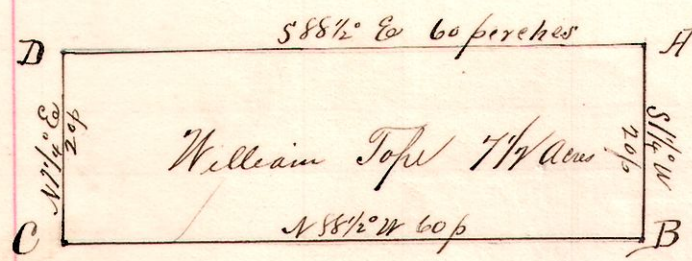 S 88 1/2° E 60 perches
D
A
N 1 1/4° E
20p
William Tope 7 1/2 Acres
20p
S 1 1/4° W
N 88 1/2° W 60 p
C
B